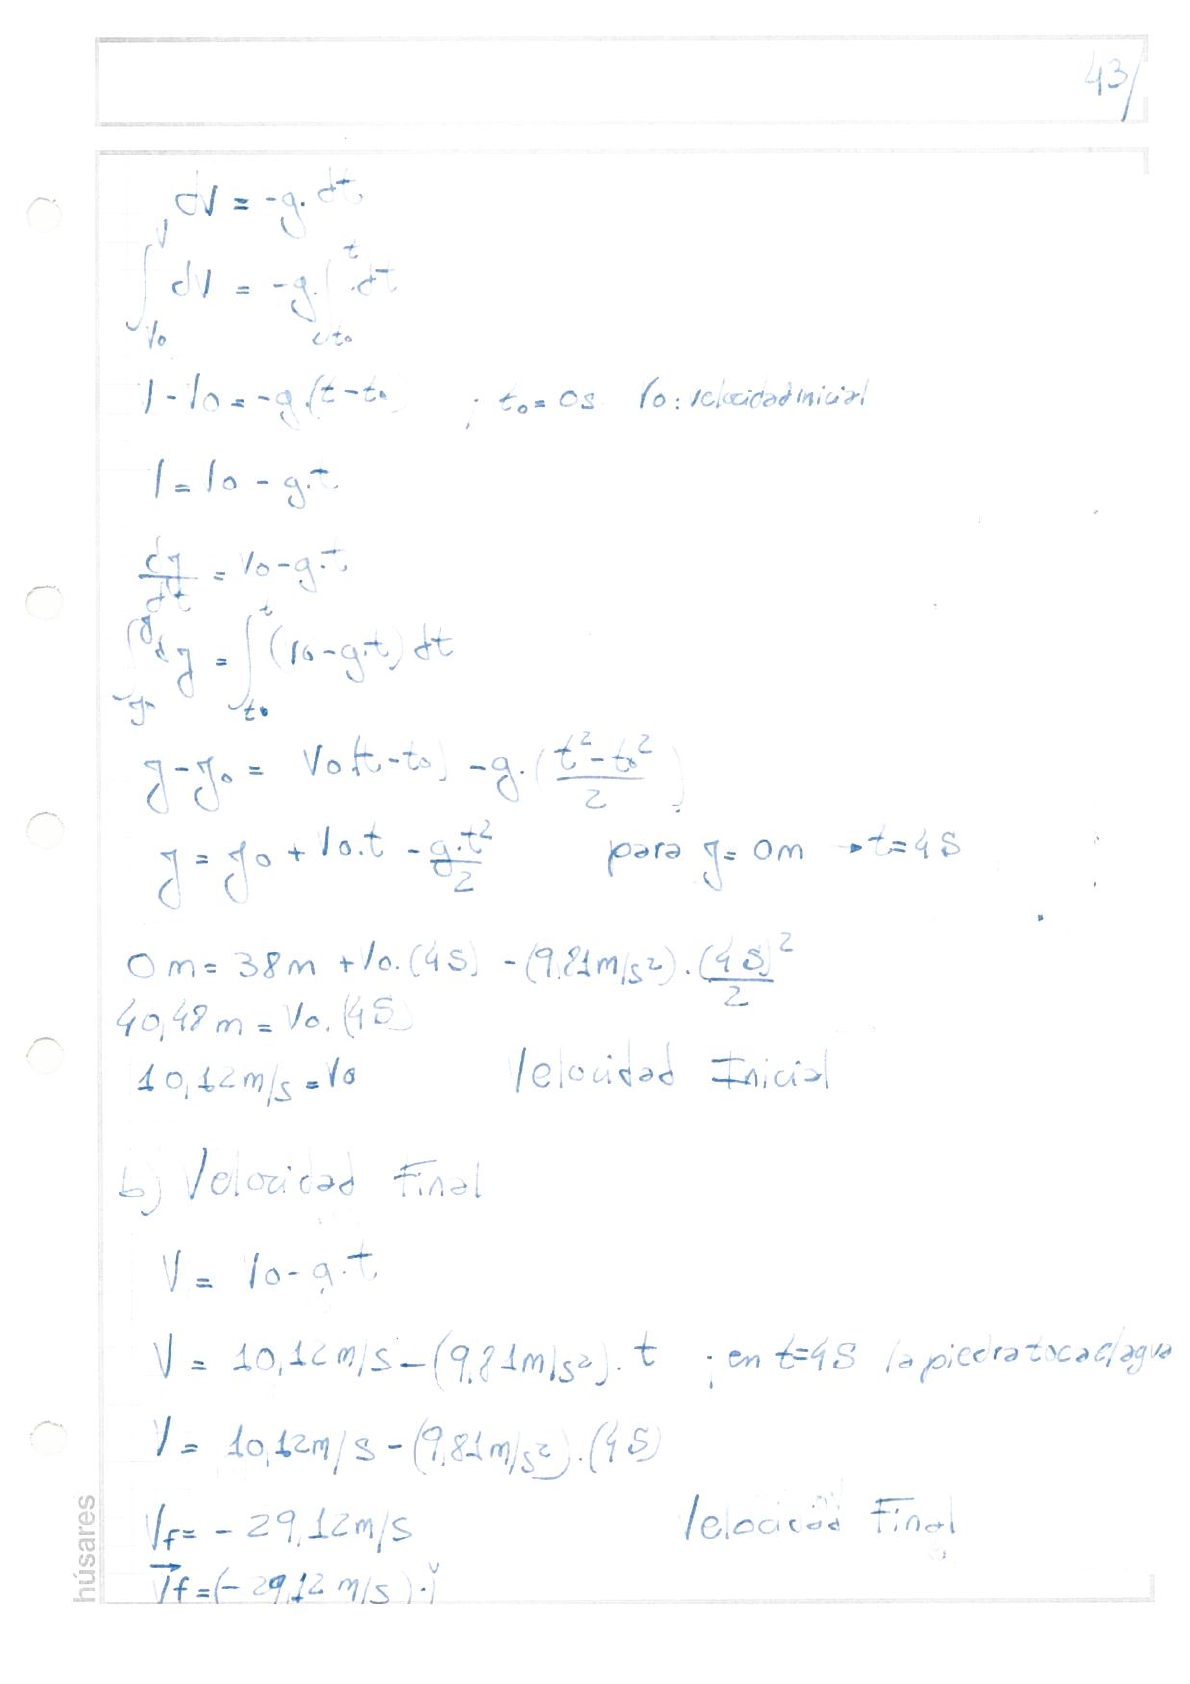 43/
dV = -g. dt
∫ᵥ₀ⱽ dV = -g. ∫ₜ₀ᵗ dt
V - Vo = -g.(t - to) ; to = 0s Vo: velocidad inicial
V = Vo - g.t
dy/dt = Vo - g.t
∫ dy = ∫ₜ₀ᵗ (Vo - g.t) dt
y - yo = Vo (t - to) - g. (t² - to²)/2
y = yo + Vo.t - g.t²/2 para y = 0m → t = 4s
0m = 38m + Vo.(4s) - (9,81m/s²).(4s)²/2
40,48m = Vo.(4s)
10,12m/s = Vo Velocidad Inicial
b) Velocidad Final
V = Vo - g.t
V = 10,12m/s - (9,81m/s²). t ; en t=4s la piedra toca el agua
V = 10,12m/s - (9,81m/s²).(4s)
Vf = - 29,12m/s Velocidad Final
V⃗f = (- 29,12 m/s).ǰ
húsares